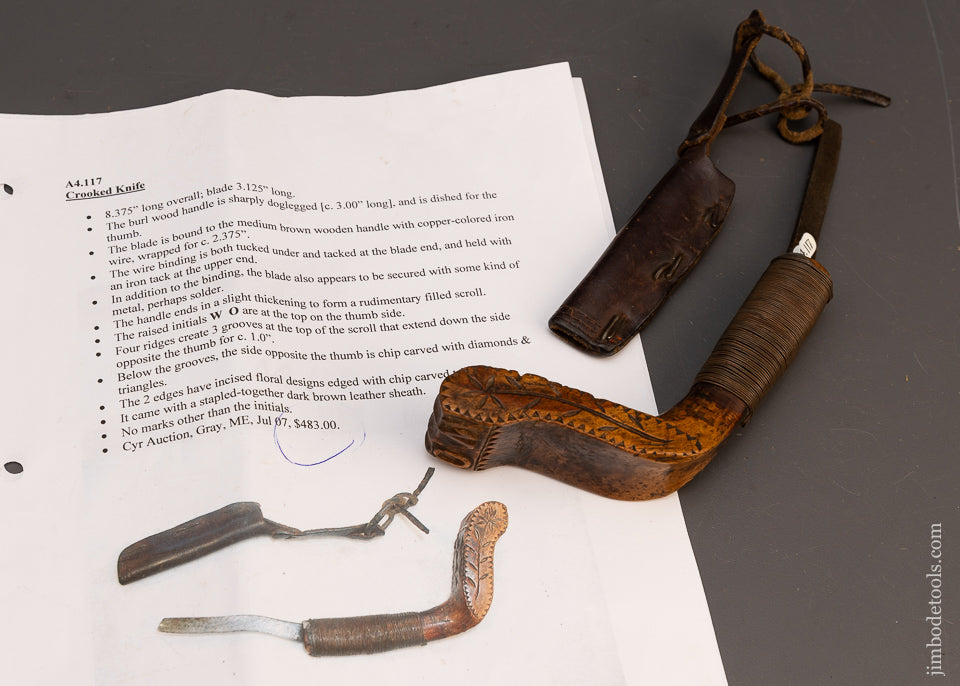 A4.117
Crooked Knife
• 8.375” long overall; blade 3.125” long.
• The burl wood handle is sharply doglegged [c. 3.00” long], and is dished for the
thumb.
• The blade is bound to the medium brown wooden handle with copper-colored iron
wire, wrapped for c. 2.375”.
• The wire binding is both tucked under and tacked at the blade end, and held with
an iron tack at the upper end.
• In addition to the binding, the blade also appears to be secured with some kind of
metal, perhaps solder.
• The handle ends in a slight thickening to form a rudimentary filled scroll.
• The raised initials W O are at the top on the thumb side.
• Four ridges create 3 grooves at the top of the scroll that extend down the side
opposite the thumb for c. 1.0”.
• Below the grooves, the side opposite the thumb is chip carved with diamonds &
triangles.
• The 2 edges have incised floral designs edged with chip carved
• It came with a stapled-together dark brown leather sheath.
• No marks other than the initials.
• Cyr Auction, Gray, ME, Jul 07, $483.00.
jimbodetools.com